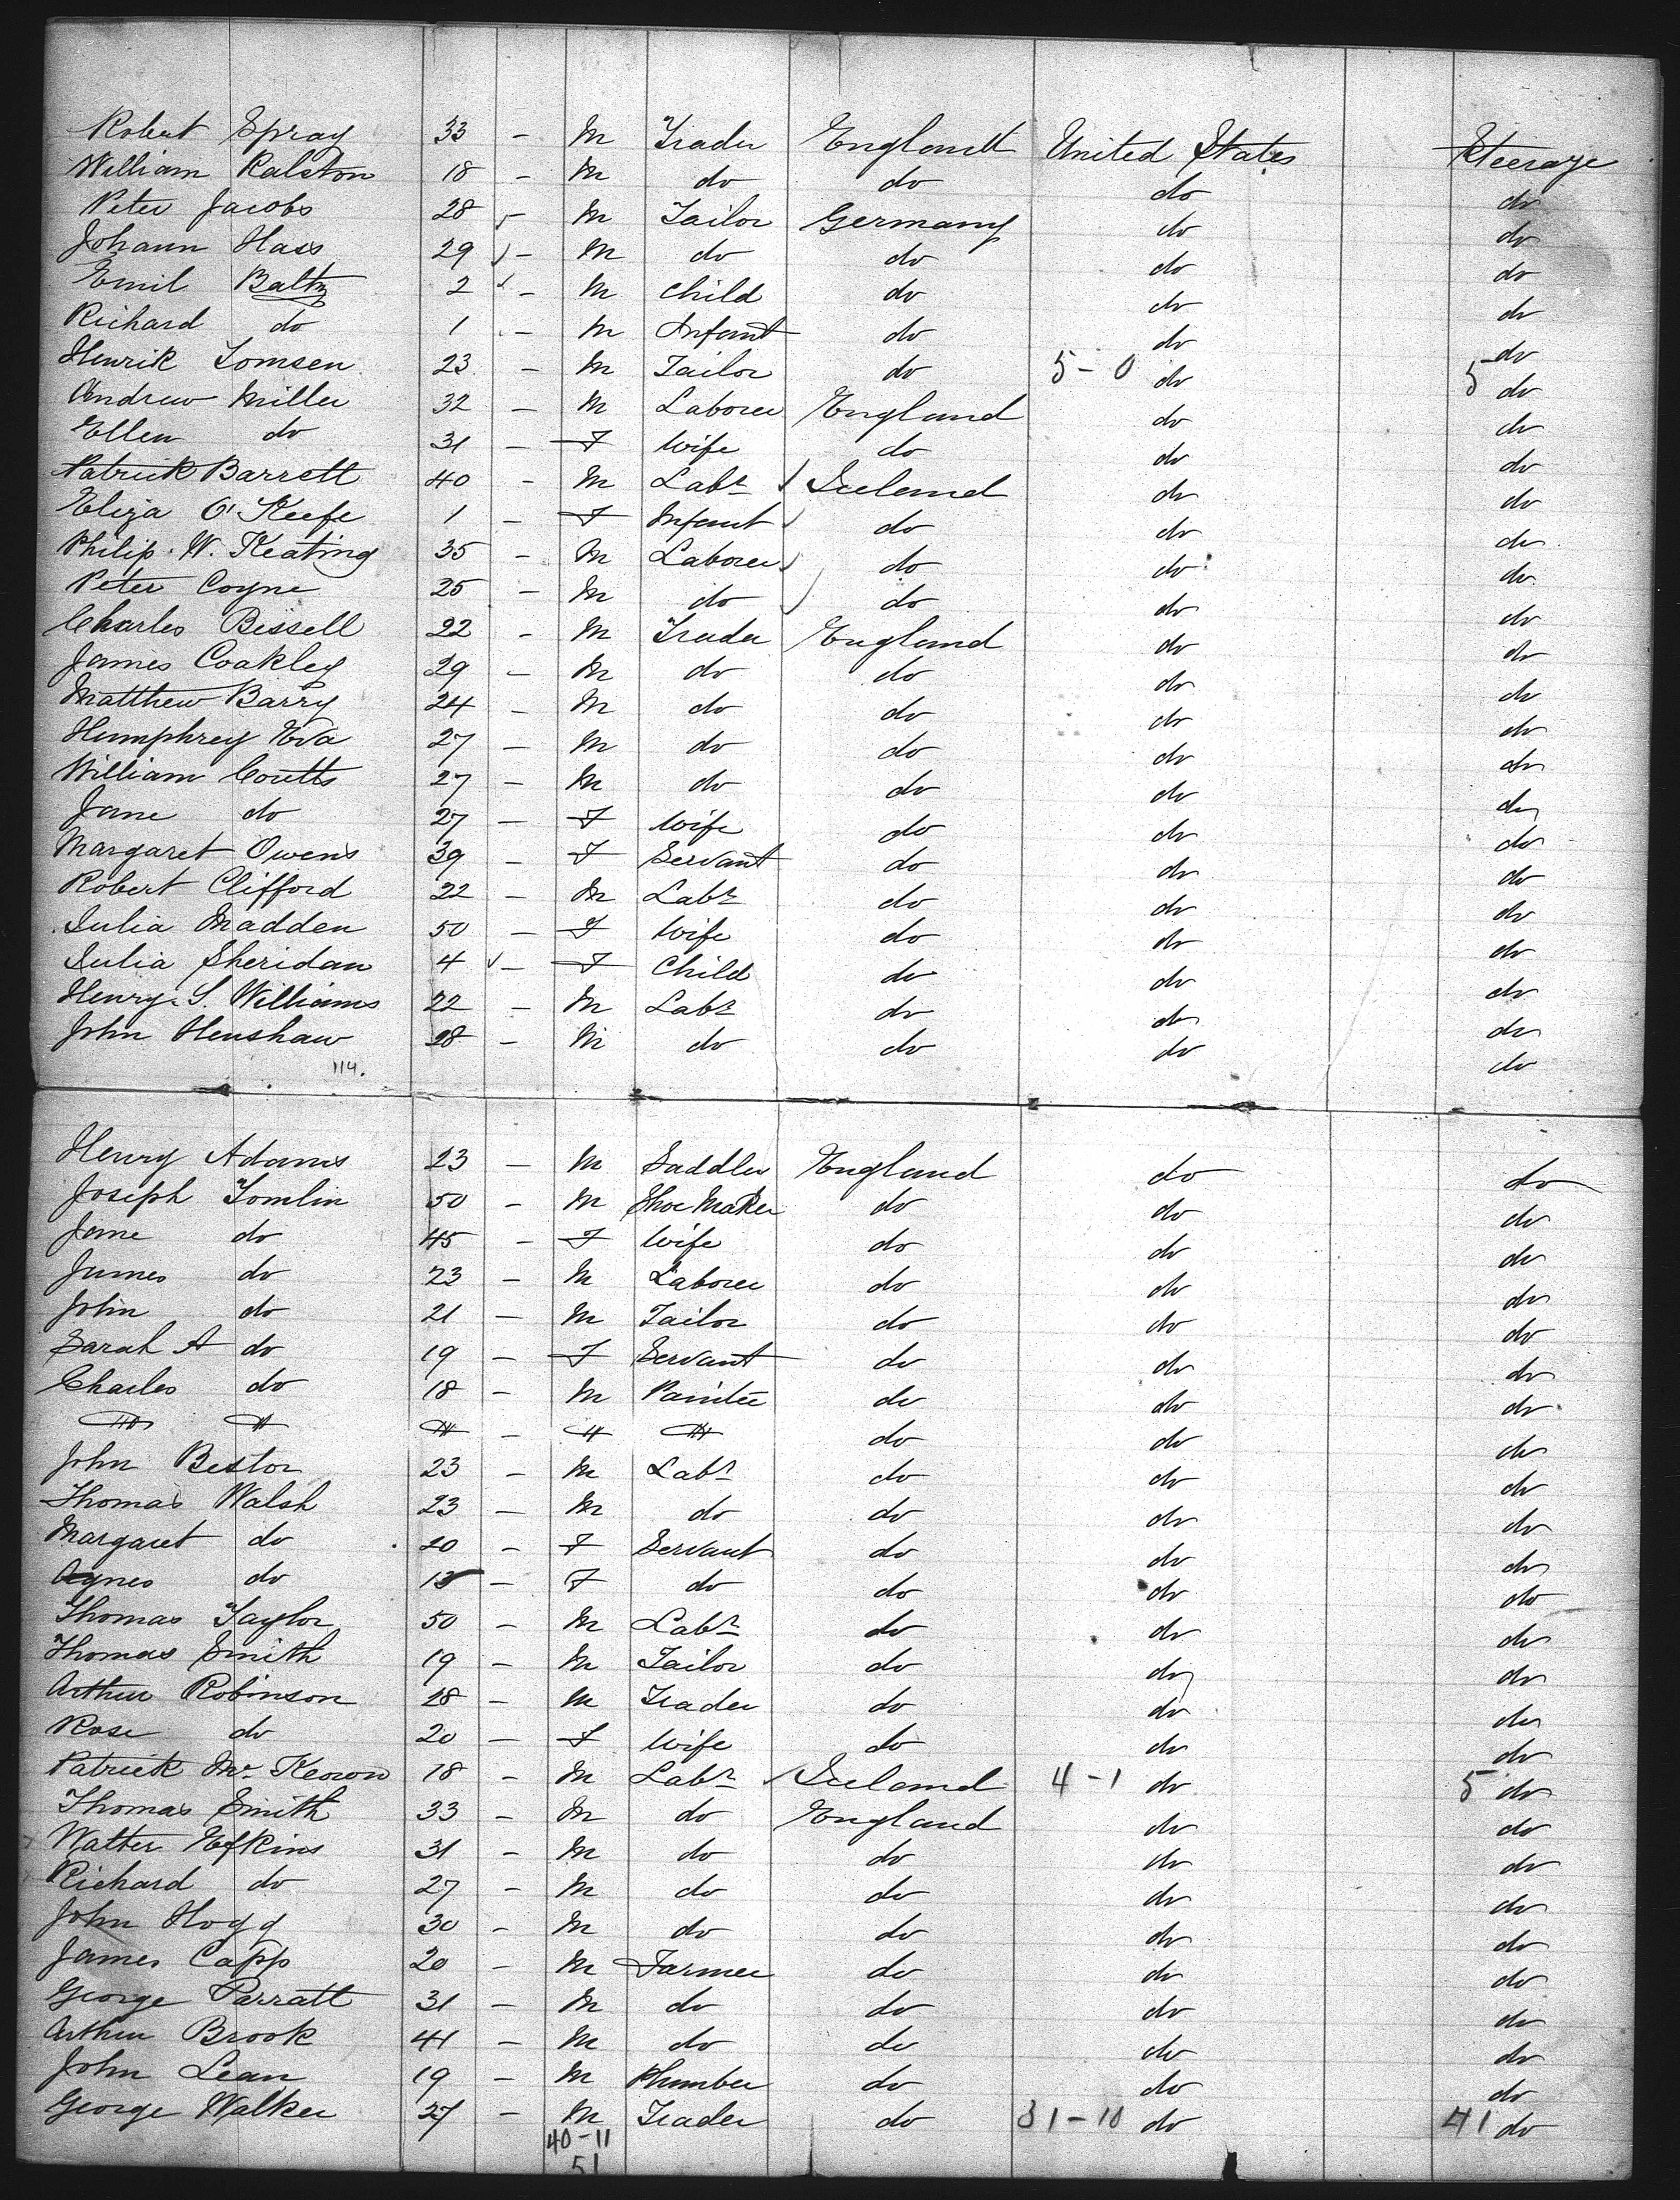 Robert Spray 33 - M Trader England United States Steerage
William Ralston 18 - M do do do do
Peter Jacobs 28 - M Tailor Germany do do
Johann Hass 29 - M do do do do
Emil Baltz 2 - M Child do do do
Richard do 1 - M Infant do do do
Henrik Tomsen 23 - M Tailor do 5-0 do 5 do
Andrew Miller 32 - M Laborer England do do
Ellen do 31 - F Wife do do do
Patrick Barrett 40 - M Labr Ireland do do
Eliza O'Keefe 1 - F Infant do do do
Philip. W. Keating 35 - M Laborer do do do
Peter Coyne 25 - M do do do do
Charles Bissell 22 - M Trader England do do
James Coakley 29 - M do do do do
Matthew Barry 24 - M do do do do
Humphrey Eva 27 - M do do do do
William Coutts 27 - M do do do do
Jane do 27 - F Wife do do do
Margaret Owens 39 - F Servant do do do
Robert Clifford 22 - M Labr do do do
Julia Madden 50 - F Wife do do do
Julia Sheridan 4 - F Child do do do
Henry. S. Williams 22 - M Labr do do do
John Henshaw 28 - M do do do do
114.
Henry Adams 23 - M Saddler England do do
Joseph Tomlin 50 - M Shoe Maker do do do
Jane do 45 - F Wife do do do
James do 23 - M Laborer do do do
John do 21 - M Tailor do do do
Sarah A do 19 - F Servant do do do
Charles do 18 - M Painter do do do
- do do do
John Bestor 23 - M Labr do do do
Thomas Walsh 23 - M do do do do
Margaret do 20 - F Servant do do do
Agnes do 15 - F do do do do
Thomas Taylor 50 - M Labr do do do
Thomas Smith 19 - M Tailor do do do
Arthur Robinson 28 - M Trader do do do
Rose do 20 - F Wife do do do
Patrick Mc Keown 18 - M Labr Ireland 4-1 do 5 do
Thomas Smith 33 - M do England do do
Walter 31 - M do do do do
Richard do 27 - M do do do do
John Hogg 30 - M do do do do
James Capp 20 - M Farmer do do do
George Parratt 31 - M do do do do
Arthur Brook 41 - M do do do do
John Lean 19 - M Plumber do do do
George Walker 27 - M Trader do 31-10 do 41 do
40-11
51